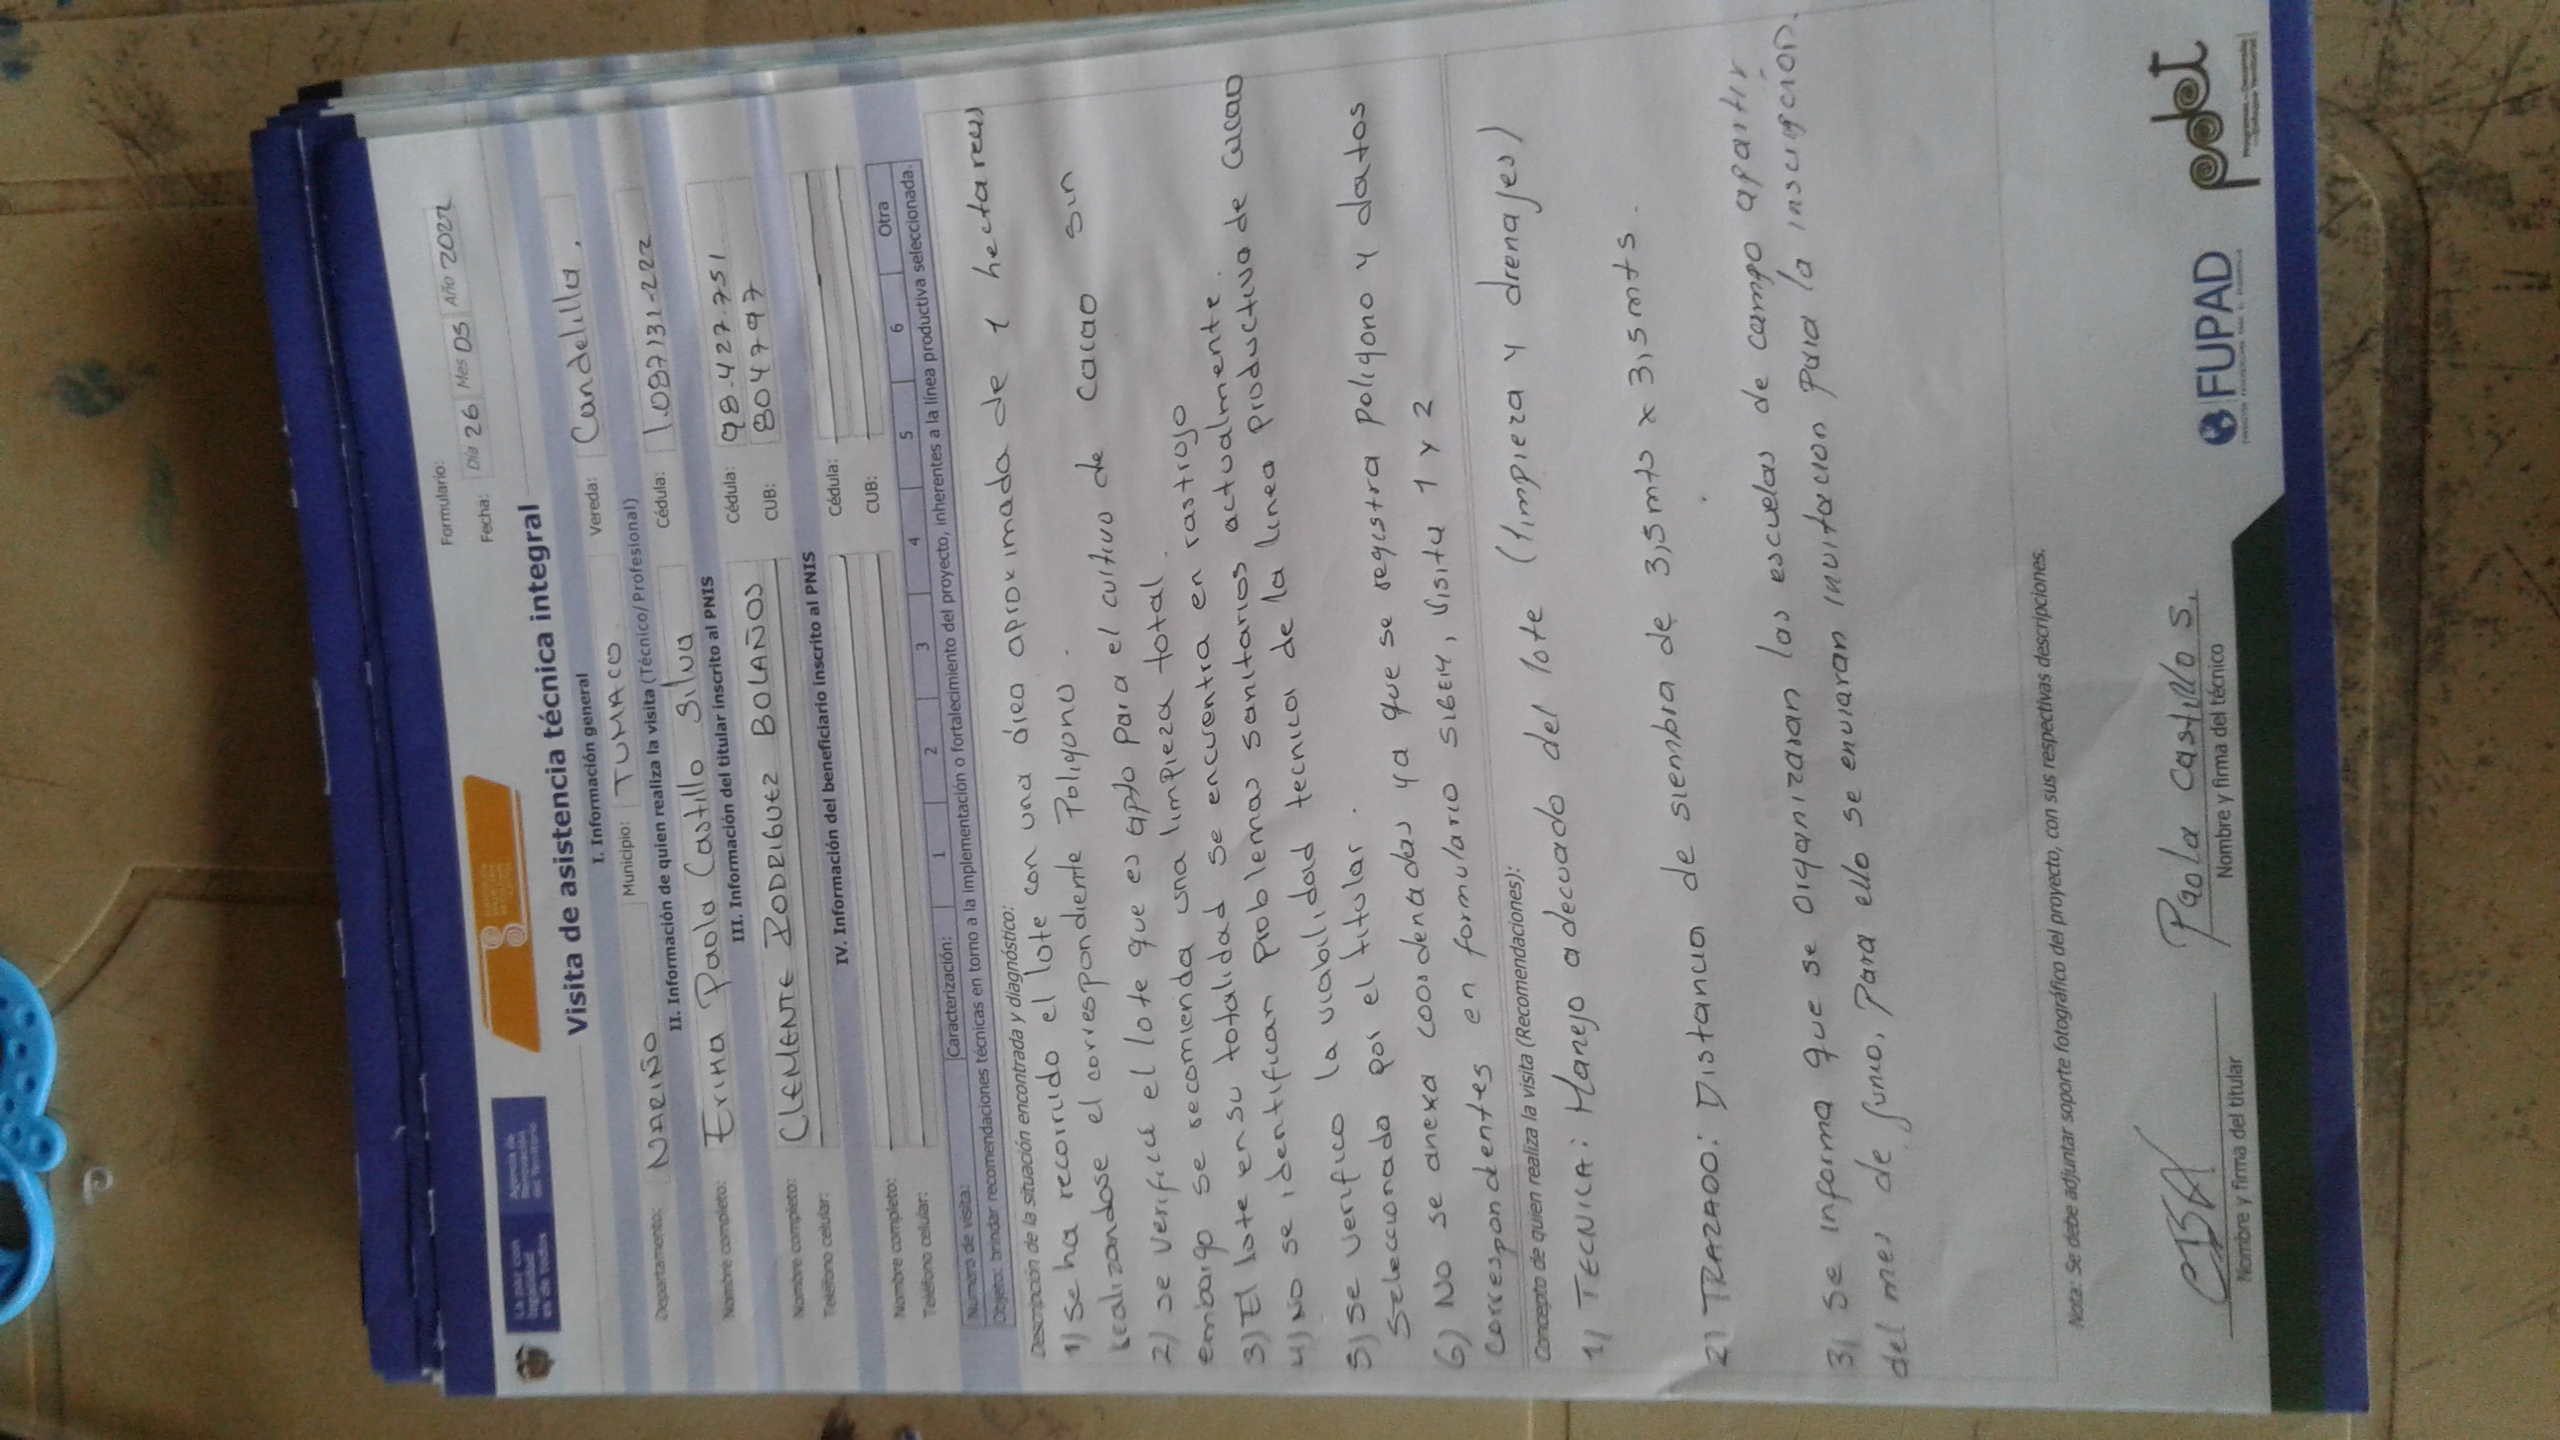 La paz con
legalidad
es de todos
Agencia de
Renovación
del Territorio
Formulario:
Fecha: Día 26 Mes 05 Año 2022
Visita de asistencia técnica integral
I. Información general
Departamento: NARIÑO Municipio: TUMACO. Vereda: Candelilla.
II. Información de quien realiza la visita (Técnico/Profesional)
Nombre completo: Erika Paola Castillo Silva Cédula: 1.087131-222
III. Información del titular inscrito al PNIS
Nombre completo: CLEMENTE RODRIGUEZ BOLAÑOS Cédula: 98.427.751
Teléfono celular: CUB: 804797
IV. Información del beneficiario inscrito al PNIS
Nombre completo: Cédula:
Teléfono celular: CUB:
Número de visita: Caracterización: 1 2 3 4 5 6 Otra
Objeto: brindar recomendaciones técnicas en torno a la implementación o fortalecimiento del proyecto, inherentes a la línea productiva seleccionada.
Descripción de la situación encontrada y diagnóstico:
1) Se ha recorrido el lote con una area aproximada de 1 hectareas
realizandose el correspondiente Poligono.
2) se verifico el lote que es apto para el cultivo de cacao sin
embargo se recomienda una limpieza total.
3) El lote en su totalidad se encuentra en rastrojo
4) No se identifican problemas sanitarios actualmente.
5) Se verifico la viabilidad tecnica de la linea productiva de cacao
seleccionado por el titular.
6) No se anexa coordenadas ya que se registra poligono y datos
correspondentes en formulario SIGEM, visita 1 y 2
Concepto de quien realiza la visita (Recomendaciones):
1) TECNICA: Manejo adecuado del lote (limpieza y drenajes)
2) TRAZADO: Distancia de siembra de 3,5mts x 3,5mts.
3) Se informa que se organizaran las escuelas de campo apartir
del mes de Junio, Para ello se enviaran invitacion para la inscripcion.
Nota: Se debe adjuntar soporte fotográfico del proyecto, con sus respectivas descripciones.
Paola Castillo S.
Nombre y firma del titular Nombre y firma del técnico
FUPAD pdet